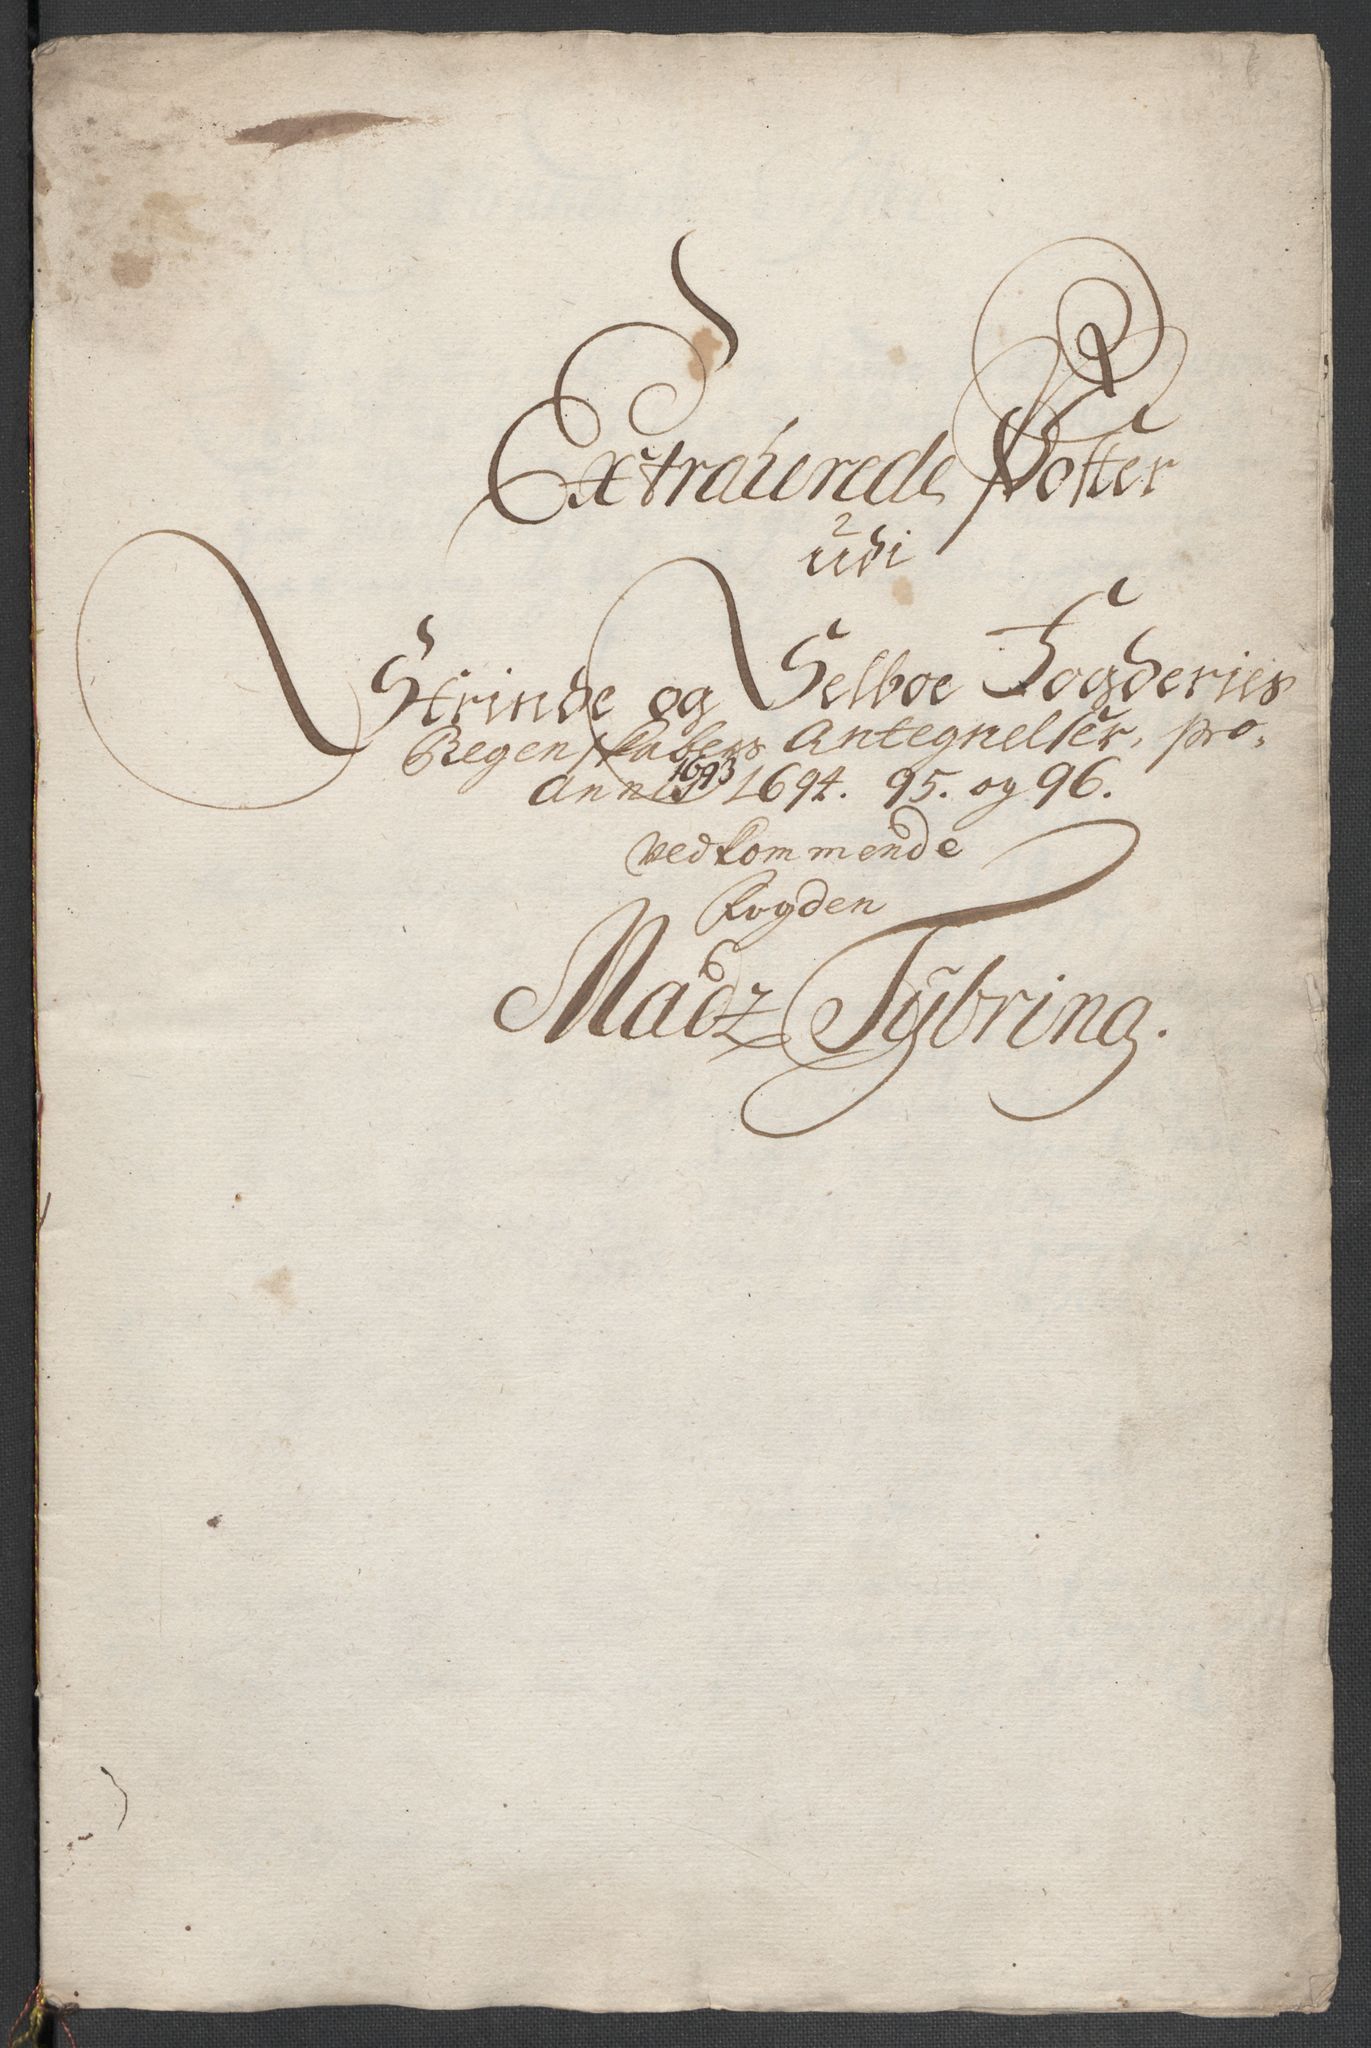 Extraherede Poster
udi
Strinde og Selboe Fogderies
Regenskabers Antegnelser, pro
Anno 1693 1694. 95. og 96.
Vedkommende
Fogden
Madz Tÿbring.